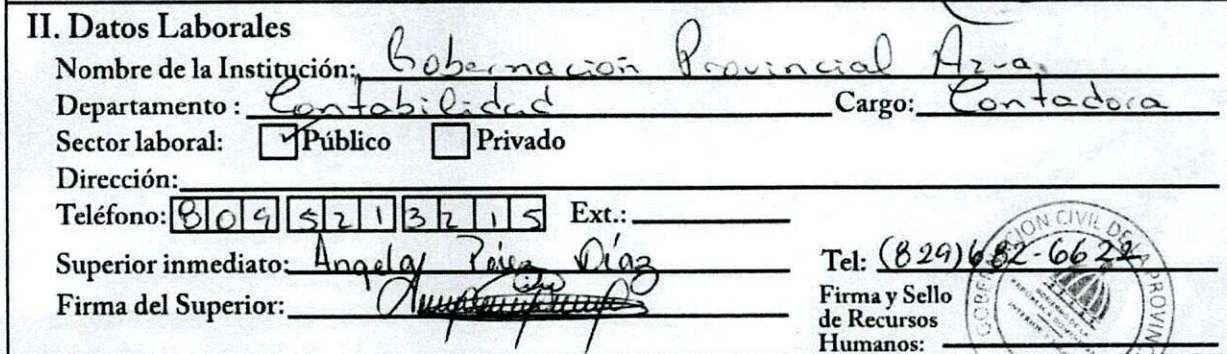 II. Datos Laborales
Nombre de la Institución: Gobernación Provincial Azua.
Departamento : Contabilidad Cargo: Contadora
Sector laboral: Público Privado
Dirección:
Teléfono: 809 521 3215 Ext.:
Superior inmediato: Angela Pérez Díaz Tel: (829)682-6622
Firma del Superior:
Firma y Sello
de Recursos
Humanos:
GOBERNACION CIVIL DE LA PROVIN